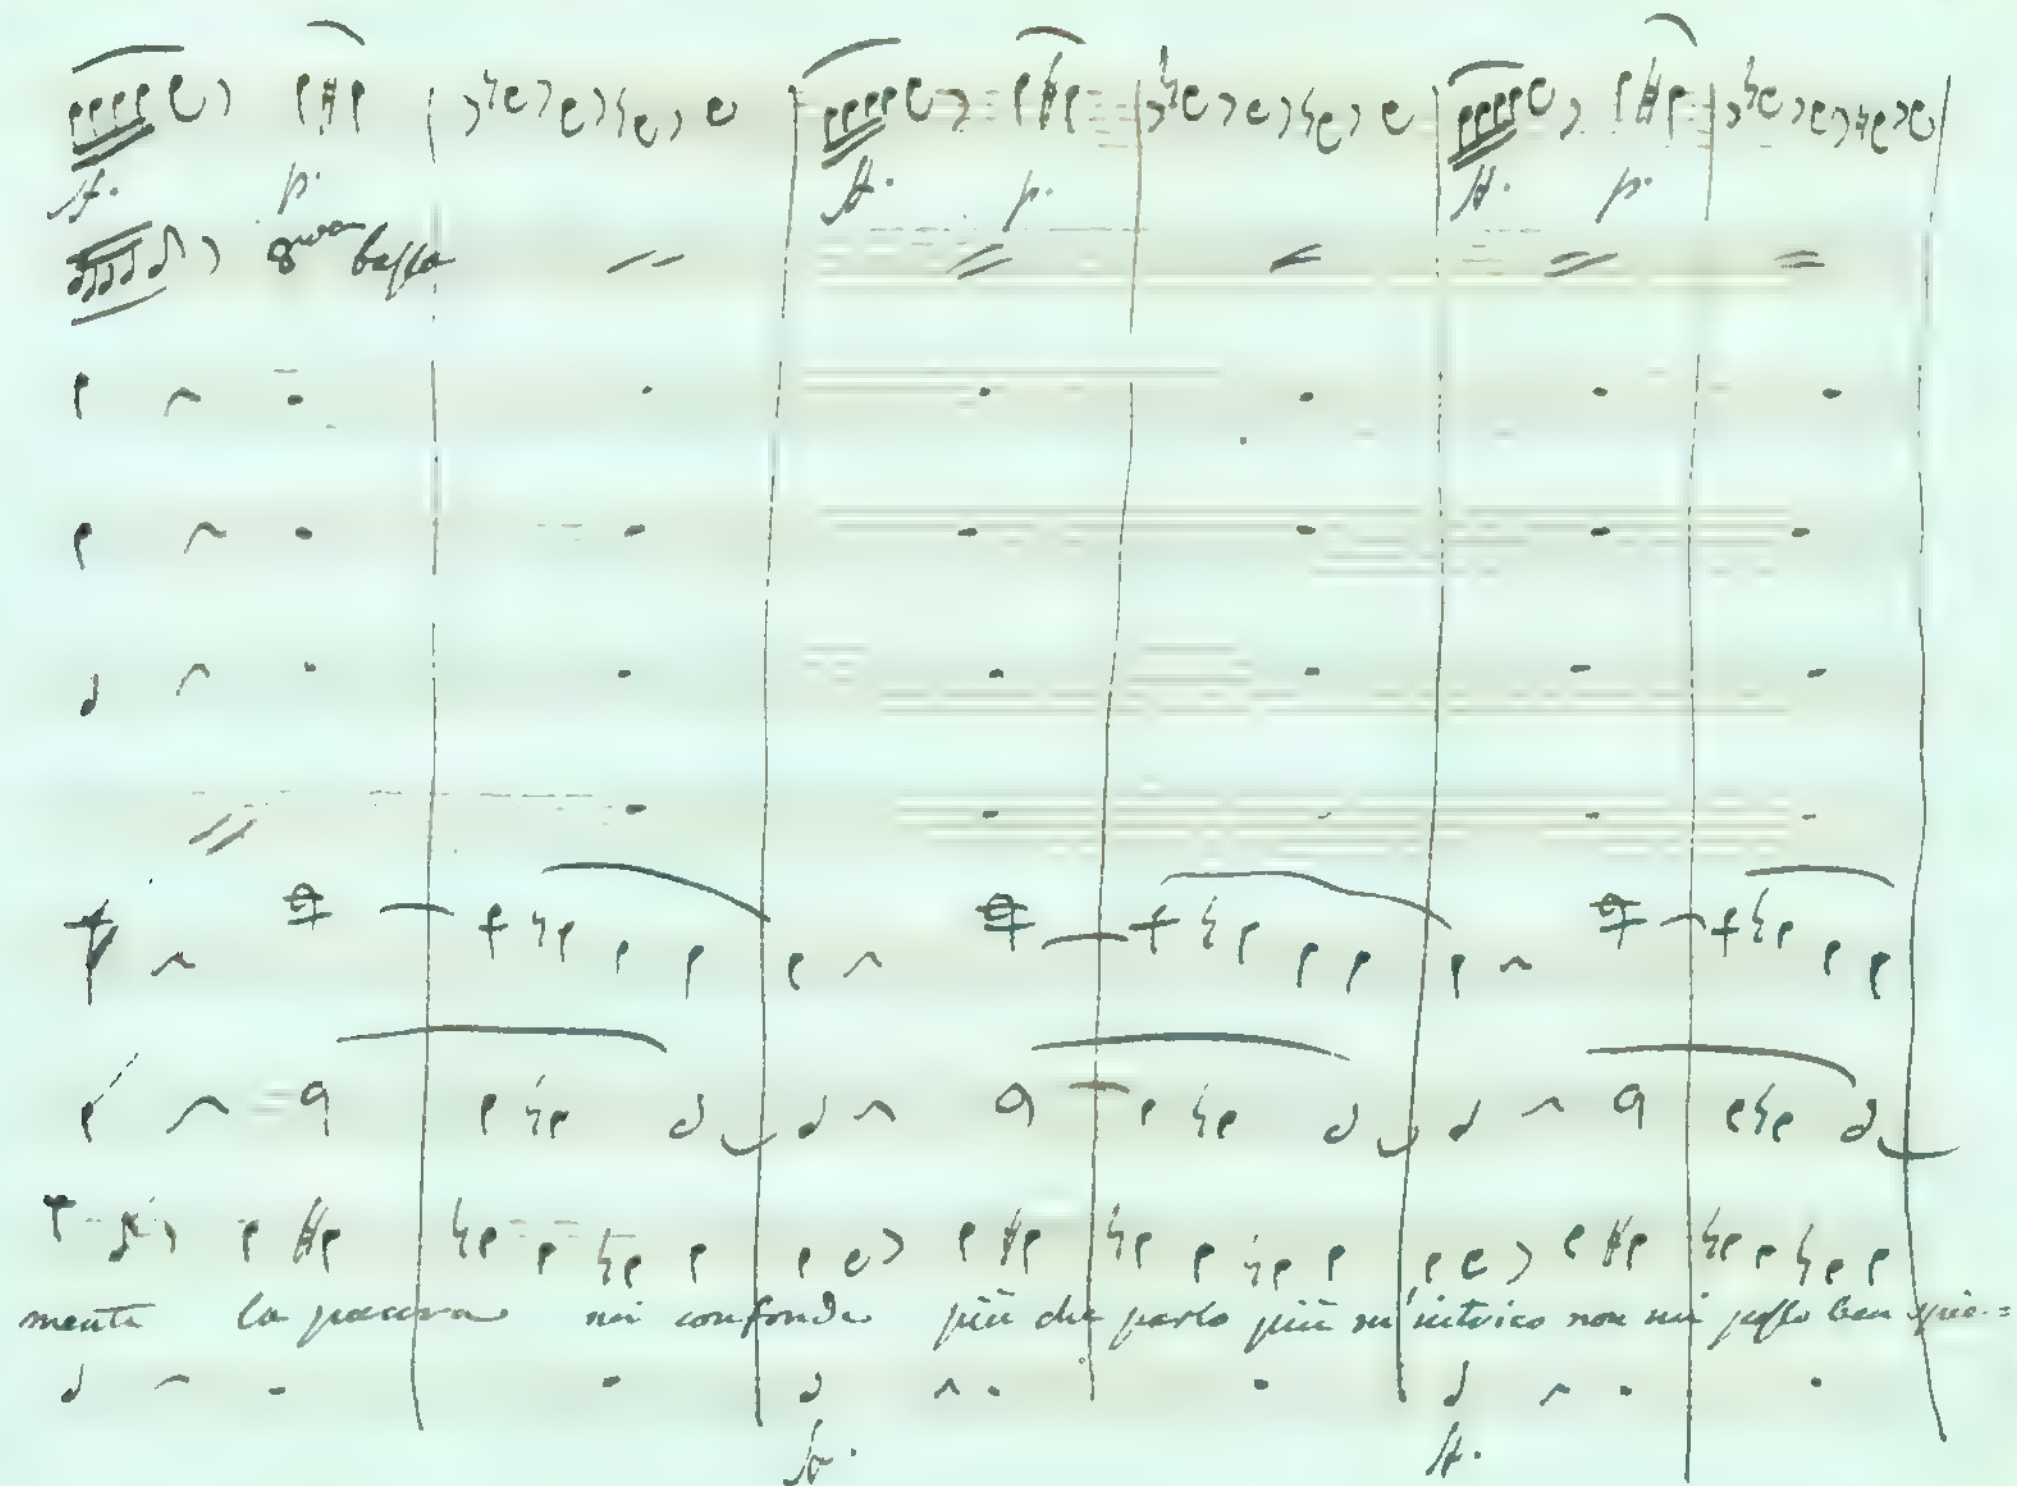 f. p. f. p. f. p.
8va bassa
mente la paura mi confonde più che parlo più m'intrico non mi posso ben spie=
f. f.